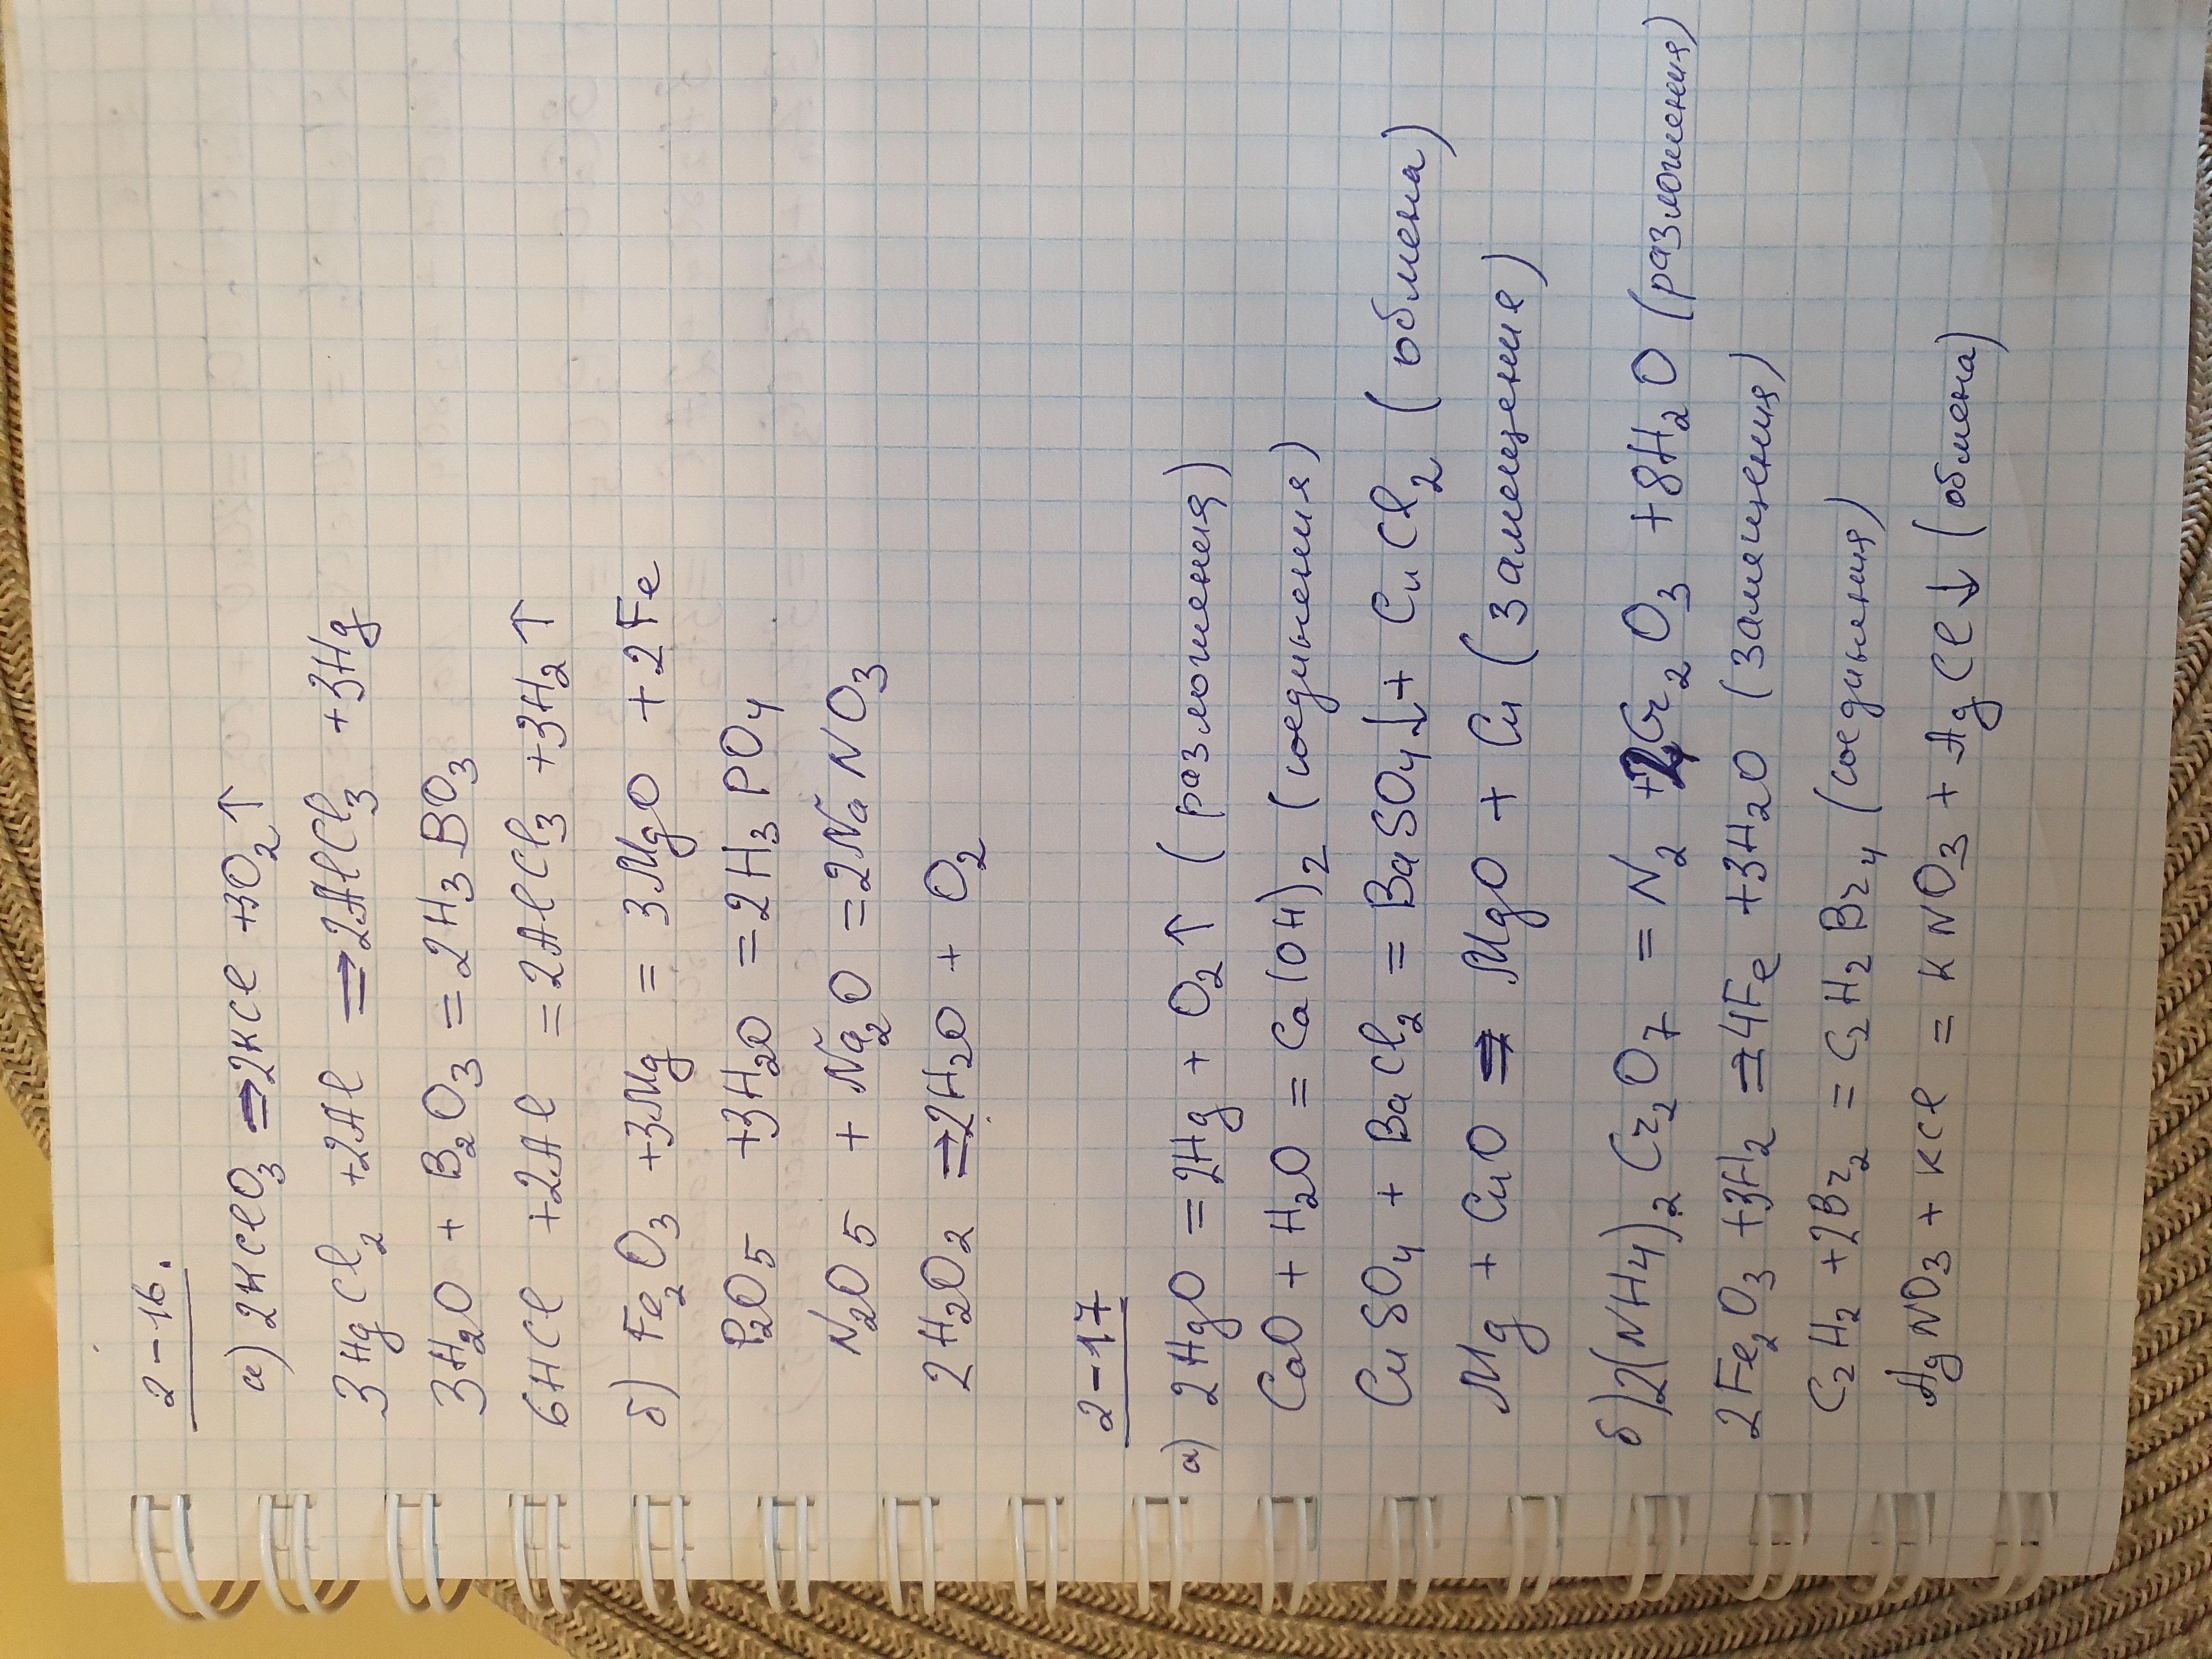 2-16.
а) 2KClO₃ ⇒ 2KCl + 3O₂↑
3HgCl₂ + 2Al ⇒ 2AlCl₃ + 3Hg
3H₂O + B₂O₃ = 2H₃BO₃
6HCl + 2Al = 2AlCl₃ + 3H₂↑
б) Fe₂O₃ + 3Mg = 3MgO + 2Fe
P₂O₅ + 3H₂O = 2H₃PO₄
N₂O₅ + Na₂O = 2NaNO₃
2H₂O₂ ⇒ 2H₂O + O₂
2-17
а) 2HgO = 2Hg + O₂↑ (разложения)
CaO + H₂O = Ca(OH)₂ (соединения)
CuSO₄ + BaCl₂ = BaSO₄↓ + CuCl₂ (обмена)
Mg + CuO ⇒ MgO + Cu (замещение)
б) 2(NH₄)₂Cr₂O₇ = N₂ + 2Cr₂O₃ + 8H₂O (разложения)
2Fe₂O₃ + 3H₂ ⇒ 4Fe + 3H₂O (замещения)
C₂H₂ + 2Br₂ = C₂H₂Br₄ (соединения)
AgNO₃ + KCl = KNO₃ + AgCl↓ (обмена)